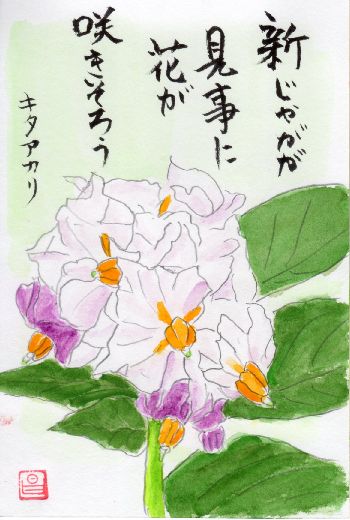 新じゃがが
見事に
花が
咲きそろう
キタアカリ